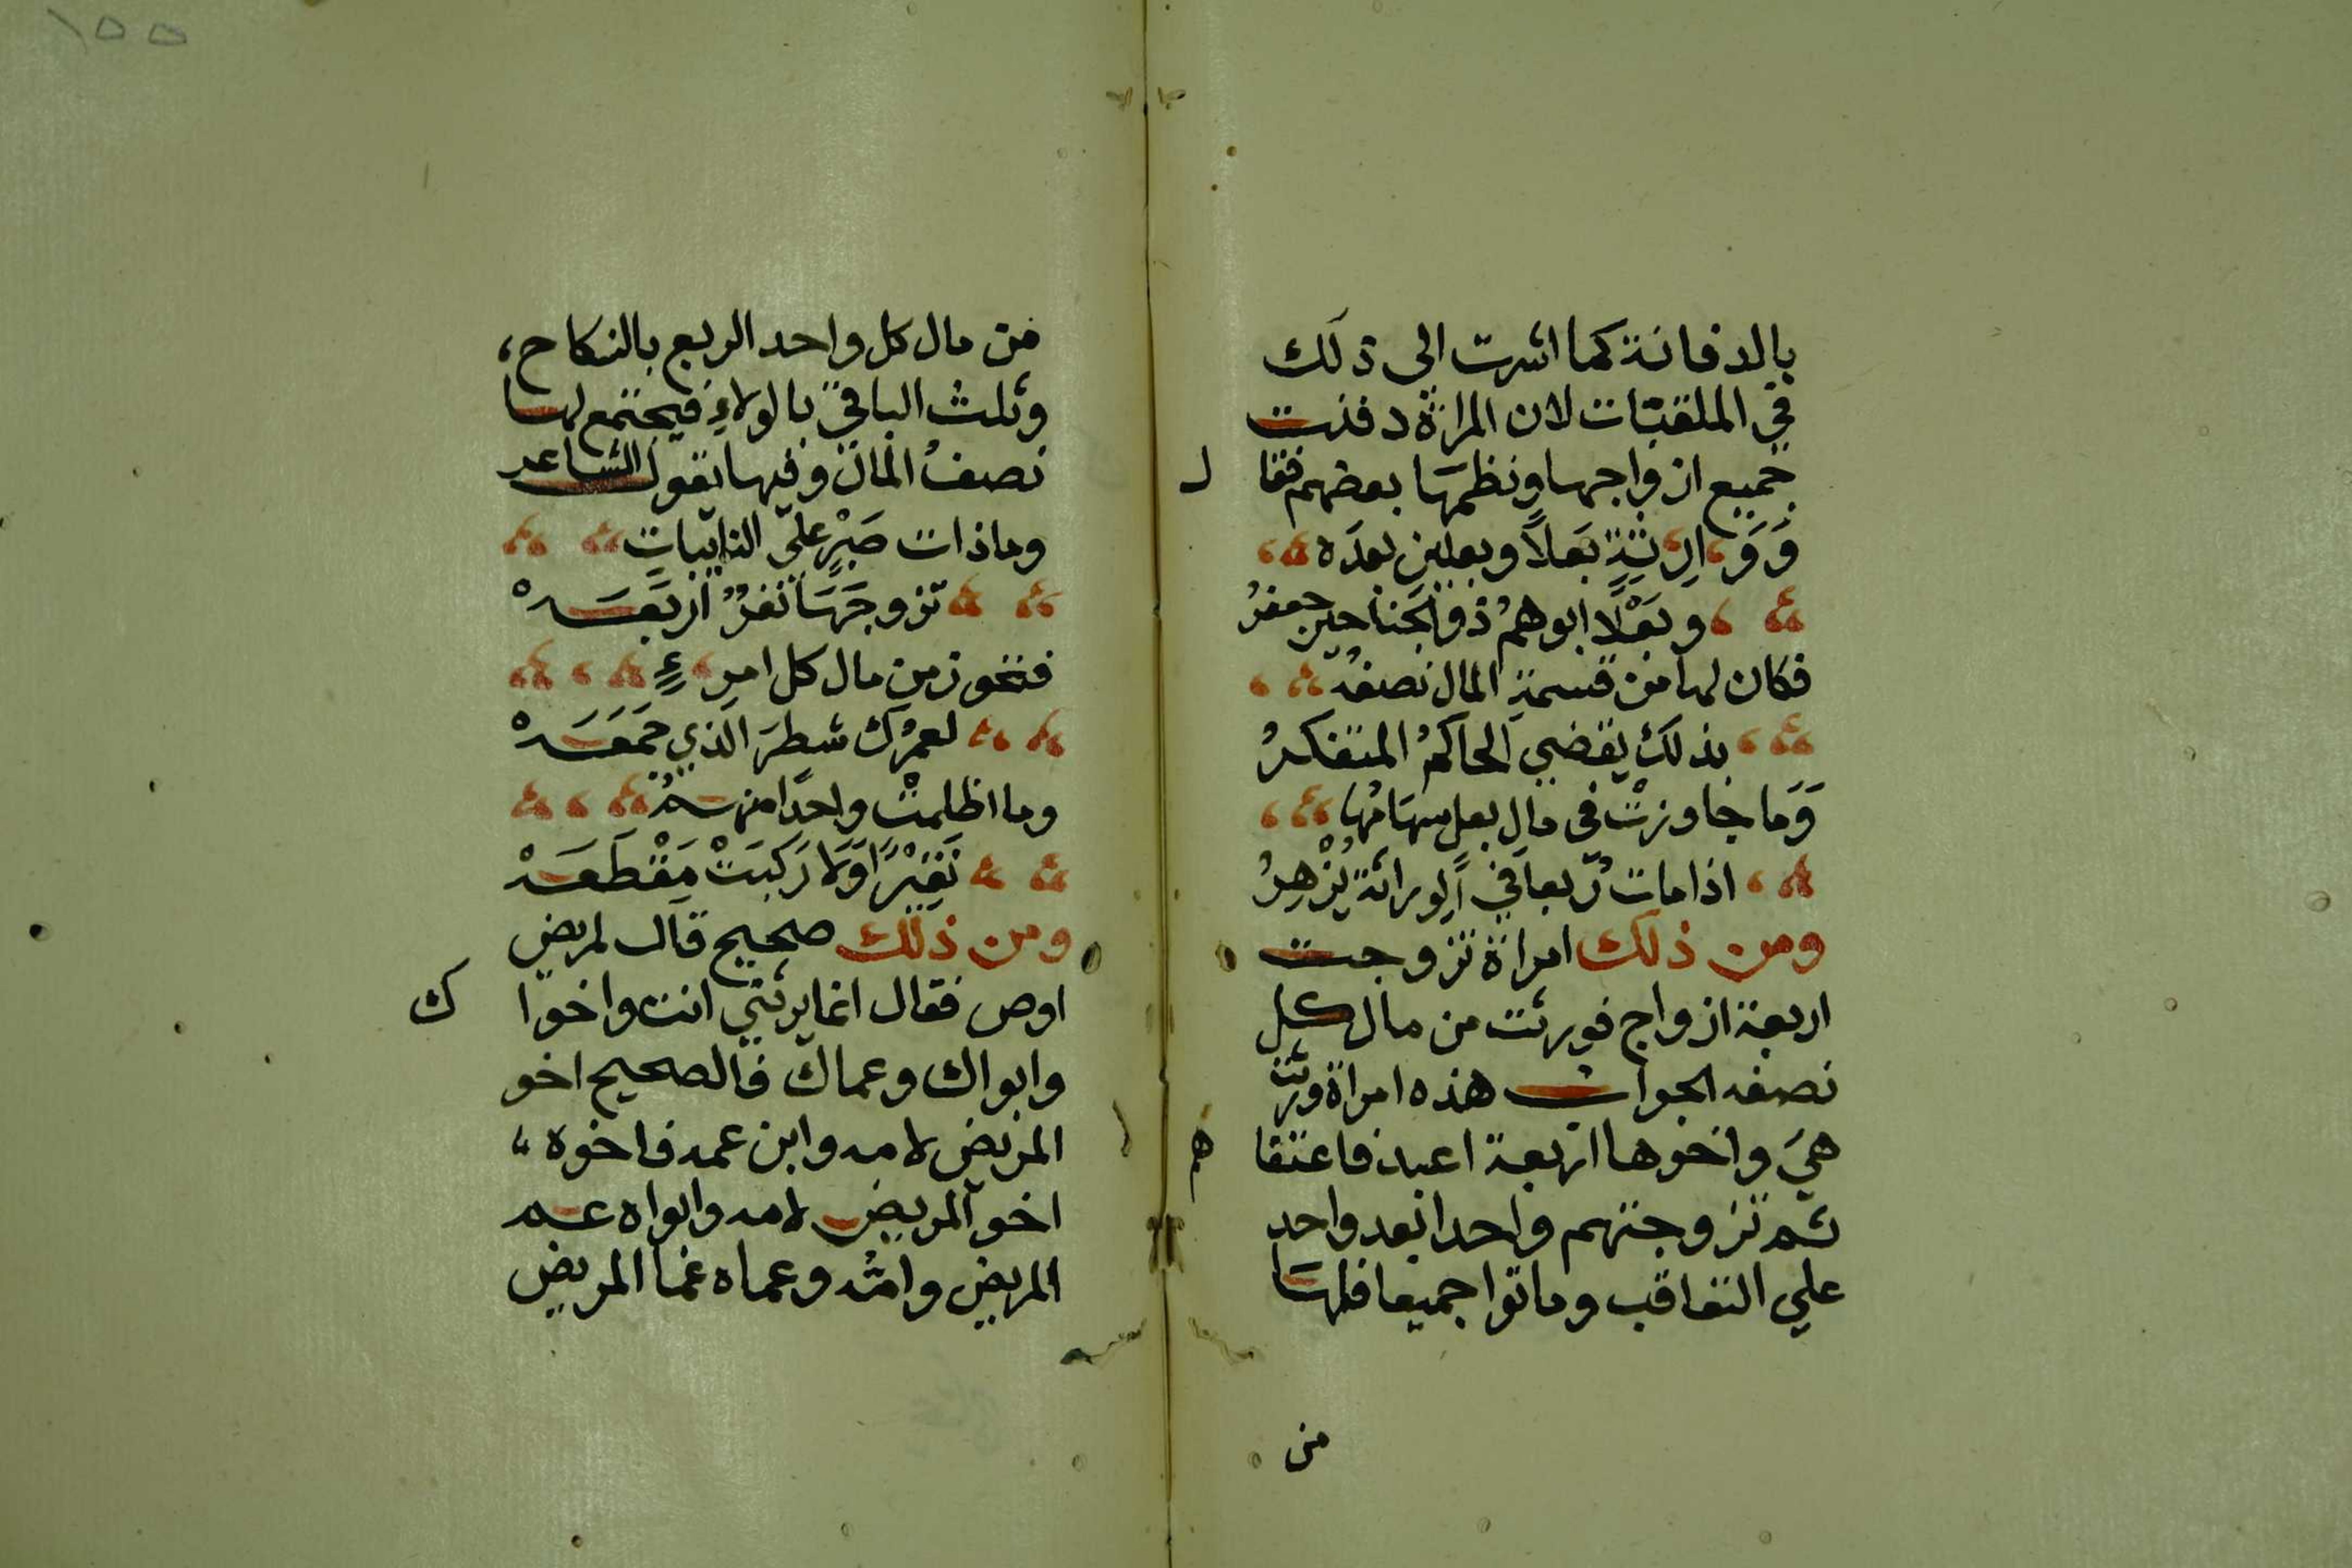 بالدفانة كما اشرت الى ذلك
في الملقبات لان المراة دفنت
جميع ازواجها ونظمها بعضهم فقا
ل
وَوَارِثةٍ بَعلاً وبعلين بعدَه
وبَعْلًا ابوهمُ ذو الجناحين جعفرُ
فكان لها من قسمةِ المال نصفُه
بذلك يقضي الحاكمُ المتفكرُ
وَمَا جاوزتْ في مالِ بعلٍ سهَامُها
اذا مات رُبعا في الوراثة يُزْهِرُ
ومن ذلك امراة تزوجت
اربعة ازواج فورثت من مال كل
نصفه الجواب هذه امراة ورثت
هيَ واخوها اربعة اعبد فاعتقا
هم
ثم تزوجتهم واحدا بعد واحد
علي التعاقب وماتوا جميعا فلها
من
١٥٥
من مال كل واحد الربع بالنكاح،
وثلث الباقي بالولاءِ فيجتمع لها
نصفُ المال وفيها يقول الشاعر
وماذات صَبْرٍ علي النايبات
تزوجَهَا نفرٌ اربَعَه
فتحوز من مال كل امرِءٍ
لعمرُك شطرَ الذي جَمَعَه
وما اظلمتْ واحدًا منهمُ
نَقِيْرًا وَلا رَكبَتْ مَقْطَعَه
ومن ذلك صحيح قال لمريض
اوص فقال انما يرثني انت واخوا
ك
وابواك وعماك فالصحيح اخو
المريض لامه وابن عمه فاخوه
اخو المريض لامه وابواه عم
المريض وامُّه وعماه عما المريض